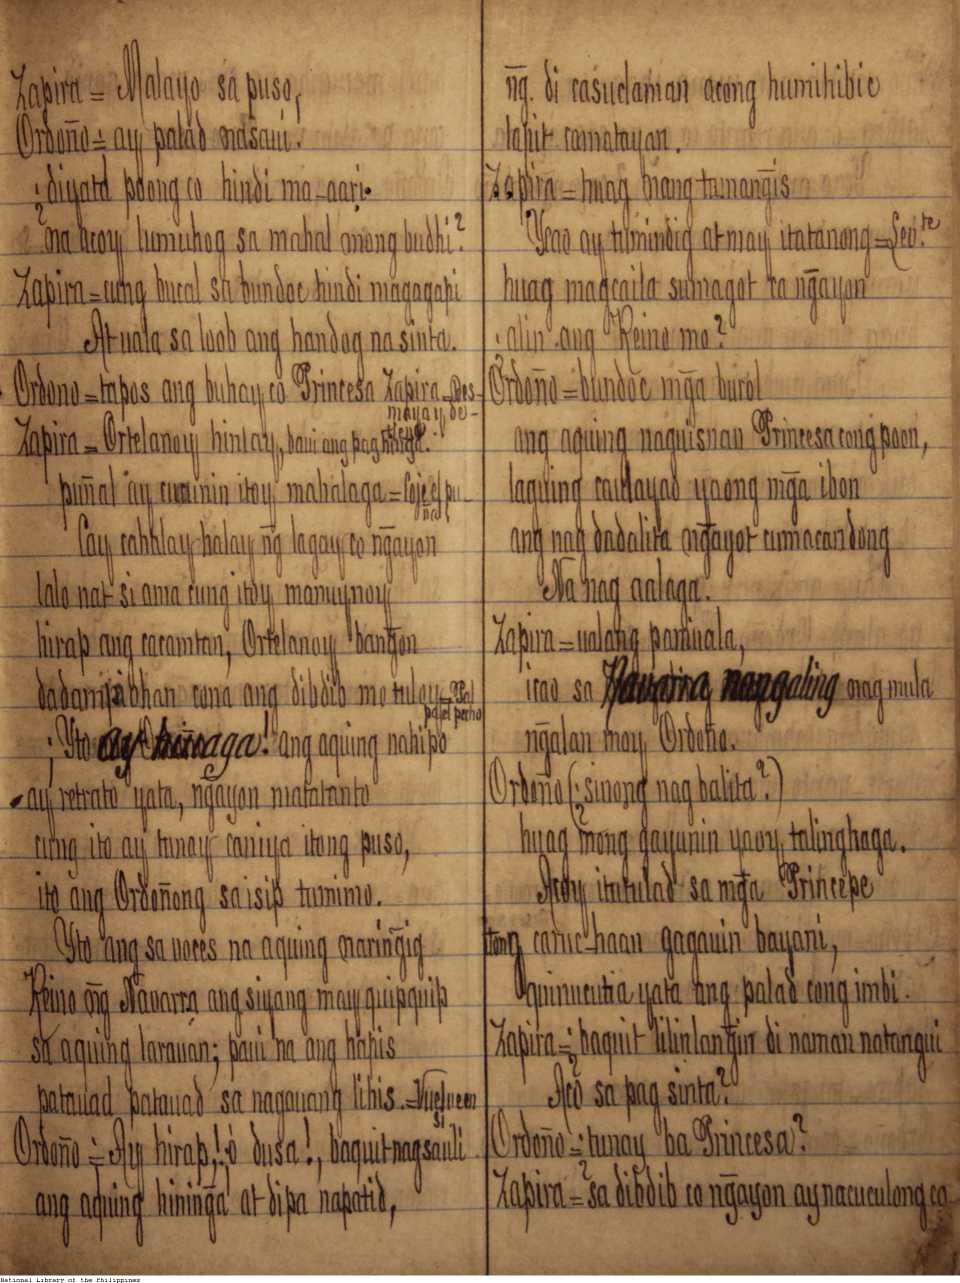 Zapira = Malayo sa puso,
Ordoño = ay palad nasaui.
¡diyata poong co hindi ma-aari
¿na acoy lumuhog sa mahal mong budhi?
Zapira = cung bucal sa bundoc hindi magagapi
At uala sa loob ang handog na sinta.
Ordono = tapos ang buhay co Princesa Zapira = Des-
mayay de-
Zapira = Ortelanoy hintay, baui ang pag
puñal ay cucunin itoy mahalaga = Coje el pu-
ñal
Cay cahblay-halay ng̃ lagay co ng̃ayon
lalo nat si ama cung itoy manuynoy
hirap ang cacamtan, Ortelanoy bang̃on
dadampibhan cona ang dibdib mo tuloy = Pal
pa el pecho
¡Yto ay hiuaga! ang aquing nahipo
ay retrato yata, ng̃ayon matatanto
cung ito ay tunay caniya itong puso,
ito ang Ordoñong sa isip tumimo.
Yto ang sa voces na aquing naring̃ig
Reino ng̃ Navarra ang siyang may quipquip
sa aquing larauan; paui na ang hapis
patauad patauad sa nagauang lihis. = Vuelve en
si
Ordoño = ¡Ay hirap,! ¡ó dusa!, baquit nagsauli
ang aquing hining̃a at dipa napatid,
ng̃. di casuclaman acong humihibic
lapit camatayan.
Zapira = huag nang tumang̃is
Ycao ay tumindig at may itatanong = Levte
huag magcaila sumagot ca ng̃ayon
¿alin ang Reino mo?
Ordoño = bundoc mg̃a burol
ang aquing naguisnan Princesa cong poon,
laguing caulayao yaong mg̃a ibon
ang nag dadalita ng̃ayot cumacandong
Na nag aalaga.
Zapira = ualang paniuala,
icao sa Navarra nangaling nag mula
ng̃alan moy Ordoño.
Ordoño (¿sinong nag balita?)
huag mong gayunin yaoy talinghaga.
Acoy itutulad sa mg̃a Princepe
tong caruc-haan gagauin bayani,
quinucutia yata ang palad cong imbi.
Zapira = ¿baquit lilinlang̃in di naman natangui
Acó sa pag sinta?
Ordoño = ¿tunay ba Princesa?
Zapira = sa dibdib co ng̃ayon ay nacuculong ca
National Library of the Philippines